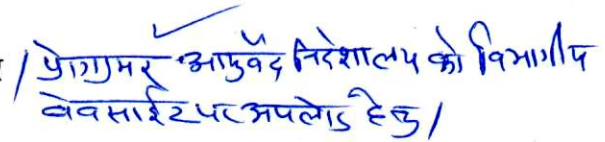 / प्रोग्रामर आयुर्वेद निदेशालय को विभागीय
वेबसाईट पर अपलोड हेतु /